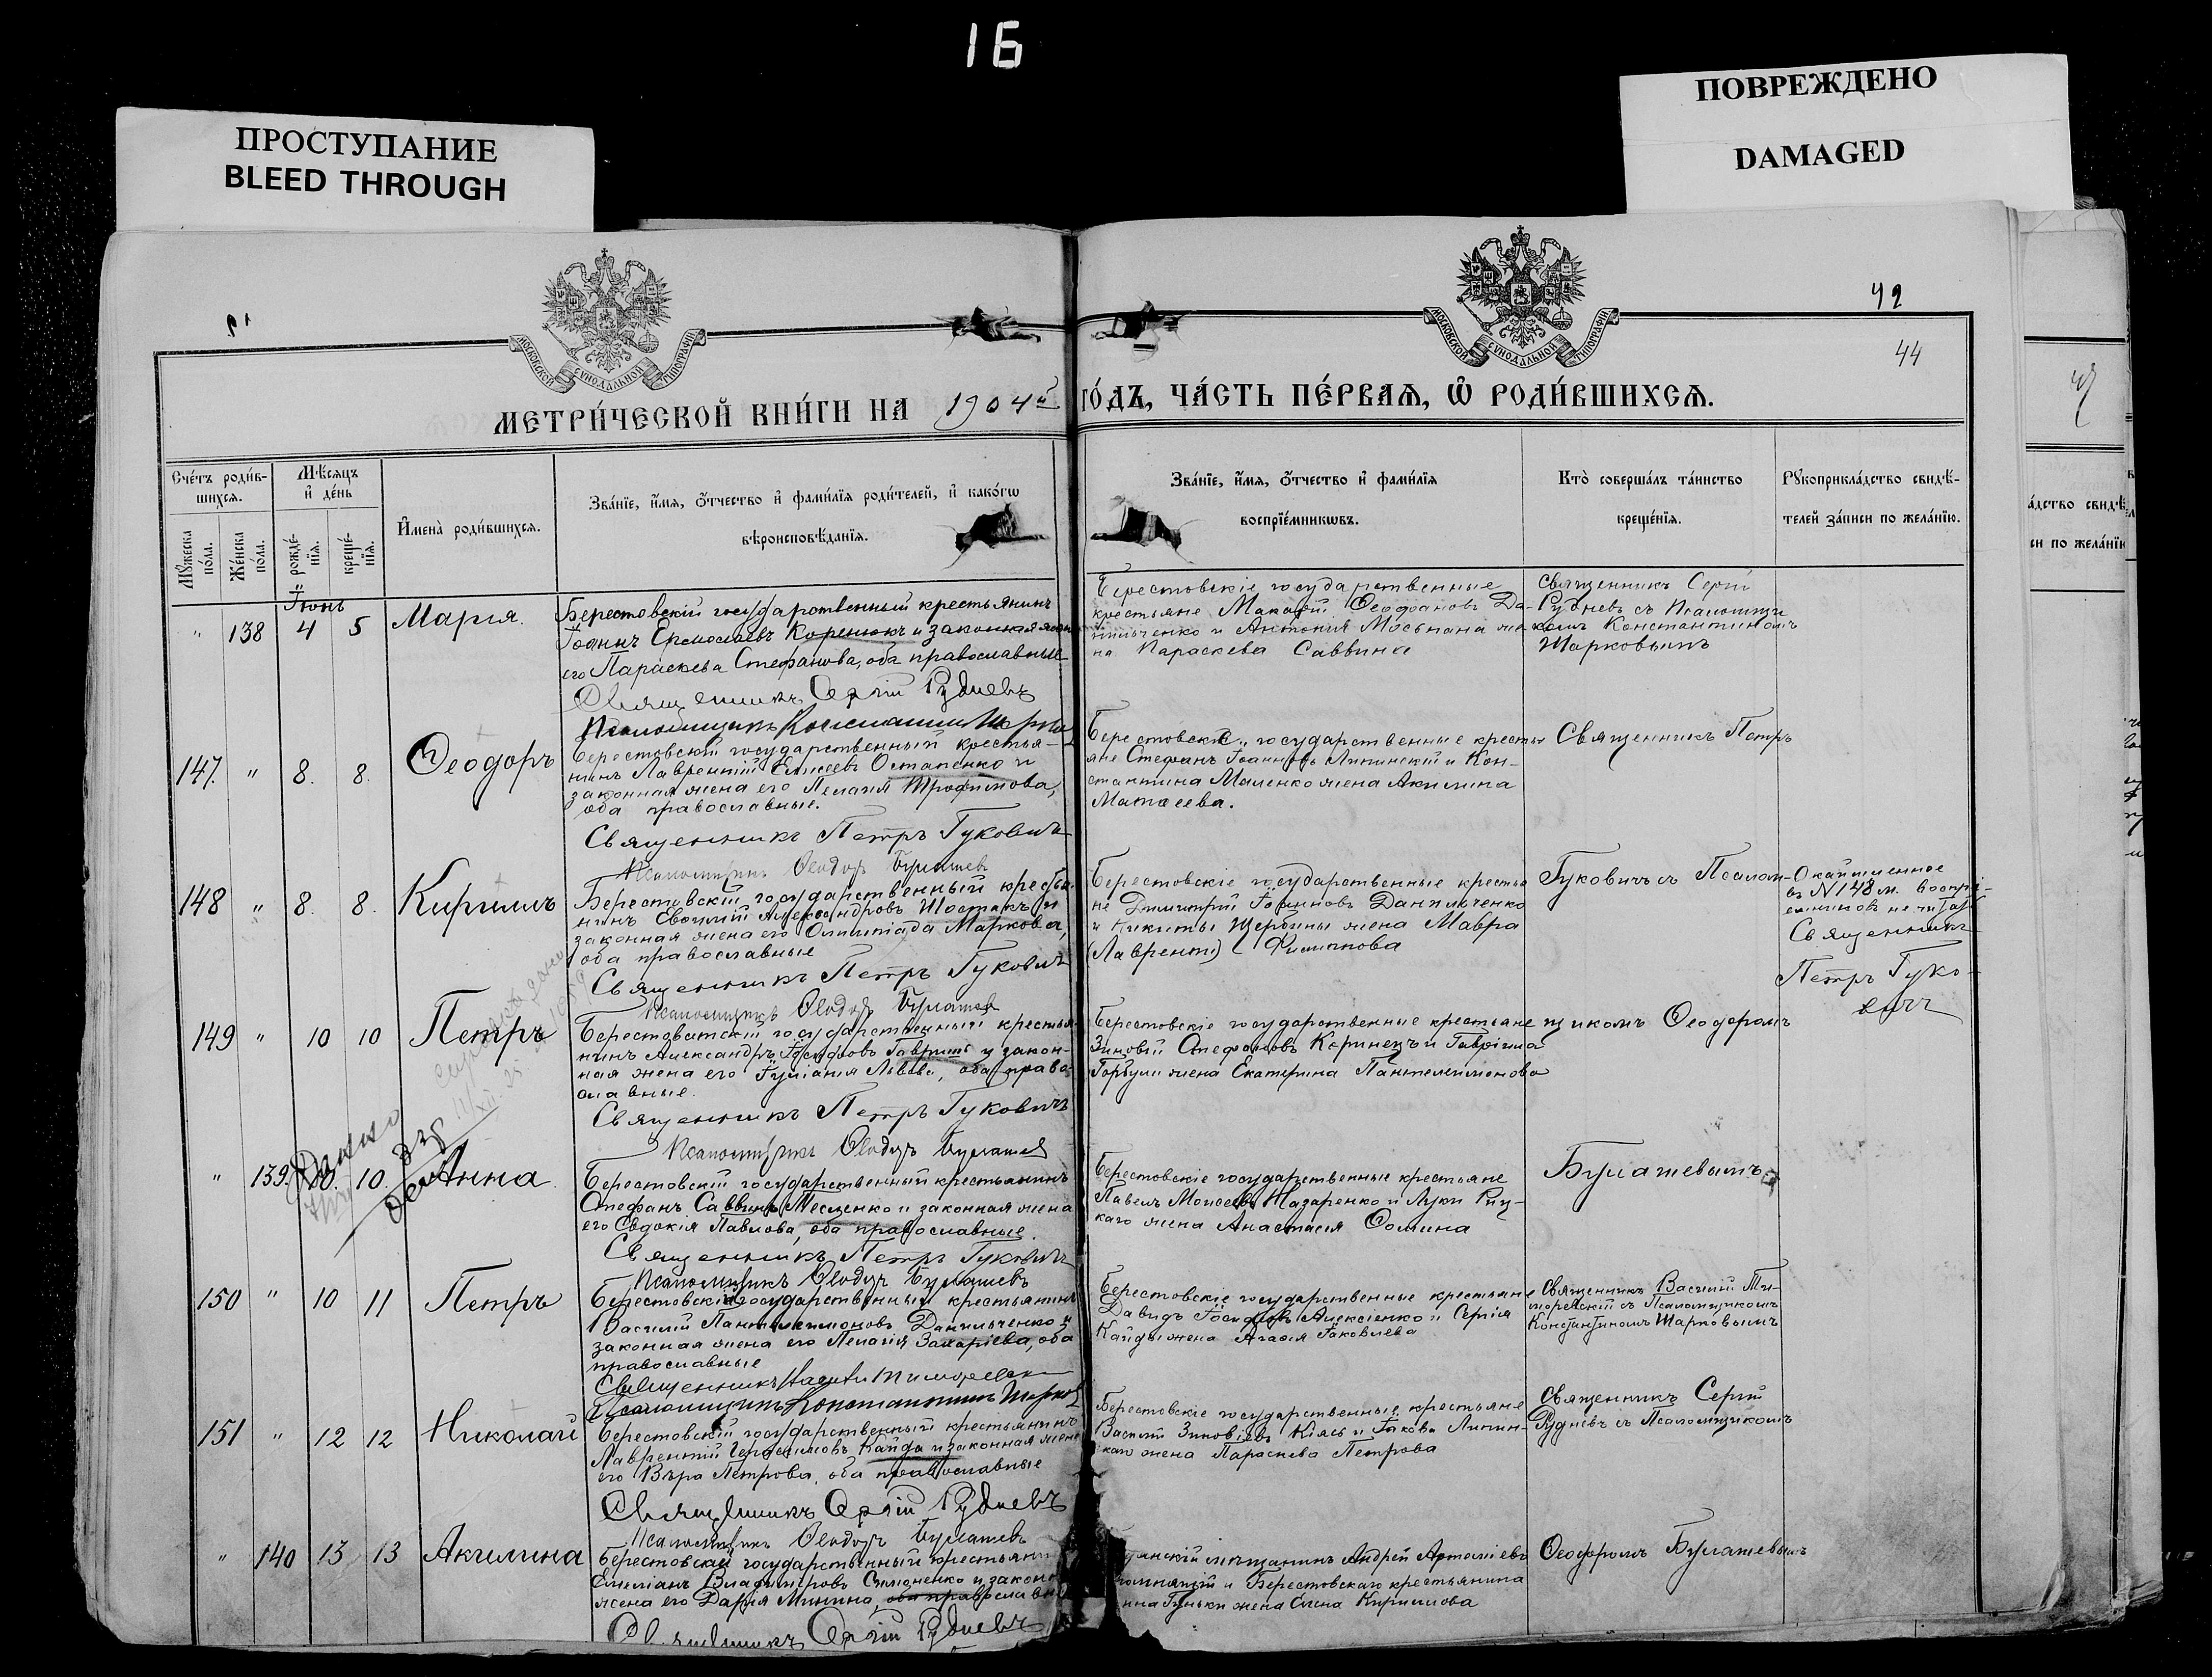 16
ПРОСТУПАНИЕ
BLEED THROUGH
ПОВРЕЖДЕНО
DAMAGED
42
44
МОСКОВСКОЙ СѴНОДАЛЬНОЙ ТИПОГРАФІИ
МОСКОВСКОЙ СѴНОДАЛЬНОЙ ТИПОГРАФІИ
МЕТРИ́ЧЕСКОЙ КНИ́ГИ НА 1904й ГО́ДЪ, ЧА́СТЬ ПЕ́РВАЯ, Ѽ РОДИ́ВШИХСЯ.
Сче́тъ роди́в-
шихся.
Мꙋжеска
по́ла.
Же́нска
по́ла.
Мѣ́сяцъ
и де́нь
рожде́-
нїя.
креще́-
нїя.
Имена̀ роди́вшихся.
Зва́нїе, и́мя, о́тчество и фами́лїя роди́телей, и како́гѡ
вѣроисповѣ́данїя.
Зва́нїе, и́мя, о́тчество и фами́лїя
воспрїе́мникѡвъ.
Кто̀ соверша́лъ та́инство
креще́нїя.
Рꙋкоприкла́дство свидѣ́-
телей за́писи по жела́нїю.
Іюнь
" 138 4 5 Марія.
Берестовскій государственный крестьянинъ
Іоаннъ Коренюкъ и законная жена
его Параскева Стефанова, оба православные
Священникъ Сергій Рудневъ
Псаломщикъ Константинъ
Берестовскіе государственные
крестьяне Макарій Ѳеофановъ Да-
нильченко и Антонія жe-
на Параскева Саввина
Священникъ Сергій
Рудневъ съ Псаломщи-
комъ Константиномъ
Шарковымъ
147. " 8. 8. Ѳеодоръ
Берестовскій государственный крестья-
нинъ Лаврентій Елисеевъ Остапенко и
законная жена его Пелагія Трофимова,
оба православные.
Священникъ Петръ Гуковичъ
Псаломщикъ Ѳеодоръ Булашев
Берестовскіе государственные крестья
яне Стефанъ Іоанновъ Липинскій и Кон-
стантина Маленко жена Акилина
Матѳеева.
Священникъ Петръ
148 " 8. 8. Кириллъ
Берестовскій государственный крестья-
нинъ Евѳимій Александровъ Шостакъ и
законная жена его Олимпіада Маркова,
оба православные
Священникъ Петръ Гуковичъ
Псаломщикъ Ѳеодоръ Булашев
Берестовскіе государственные крестья
не Димитрій Іоанновъ Данильченко
и Никиты Щербины жена Мавра
(Лаврентъ) Филиппова
Гуковичъ съ Псалом-
Окаймленное
въ №148 м. воспрі-
емниковъ не читать
Священникъ
Петръ Гуко-
вичъ
149 " 10 10 Петръ
Берестоватскій государственный крестья
нинъ Александръ Іосифовъ и закон-
ная жена его Іуліанія Львова, оба право-
славные.
Священникъ Петръ Гуковичъ
Псаломщикъ Ѳеодоръ Булашев
Берестовскіе государственные крестьяне
Зиновій Стефановъ Коринецъ и Гавріила
Горбули жена Екатерина Пантелеимонова
щикомъ Ѳеодоромъ
" 139. 10. 10. Анна
Берестовскій государственный крестьянинъ
Стефанъ Саввинъ и законная жена
его Евдокія Павлова, оба православные.
Священникъ Петръ Гуковичъ
Псаломщикъ Ѳеодоръ Булашевъ
Берестовскіе государственные крестьяне
Павелъ Моисеевъ Назаренко и Луки Риц-
каго жена Анастасія Ѳомина
Булашевымъ
150 " 10 11 Петръ
Берестовскій государственный крестьянинъ
Василій Пантелеимоновъ Данильченко и
законная жена его Пелагія Захаріева, оба
православные
Священникъ
Псаломщикъ Константинъ
Берестовскіе государственные крестьяне
Давидъ Іосифовъ Алексіенко и Сергія
Кайды жена Агаѳія Іаковлева
Священникъ Василій Ти-
моревскій съ Псаломщикомъ
Константиномъ Шарковымъ
151 " 12 12 Николай
Берестовскій государственный крестьянинъ
Лаврентій Герасимовъ Кайда и законная жена
его Вѣра Петрова, оба православные
Священникъ Сергій Рудневъ
Псаломщикъ Ѳеодоръ Булашевъ
Берестовскіе государственные крестьяне
Василій Зиновіевъ и Іакова Липин-
скаго жена Параскева Петрова
Священникъ Сергій
Рудневъ съ Псаломщикомъ
" 140 13 13 Акилина
Берестовскій государственный крестьянинъ
Емеліанъ Владиміровъ Симоненко и законн
жена его Дарія Минина, оба православные
Священникъ Сергій Рудневъ
мѣщанинъ Андрей
и Берестовскаго крестьянина
жена Елена Кириллова
Ѳеодоромъ Булашевымъ